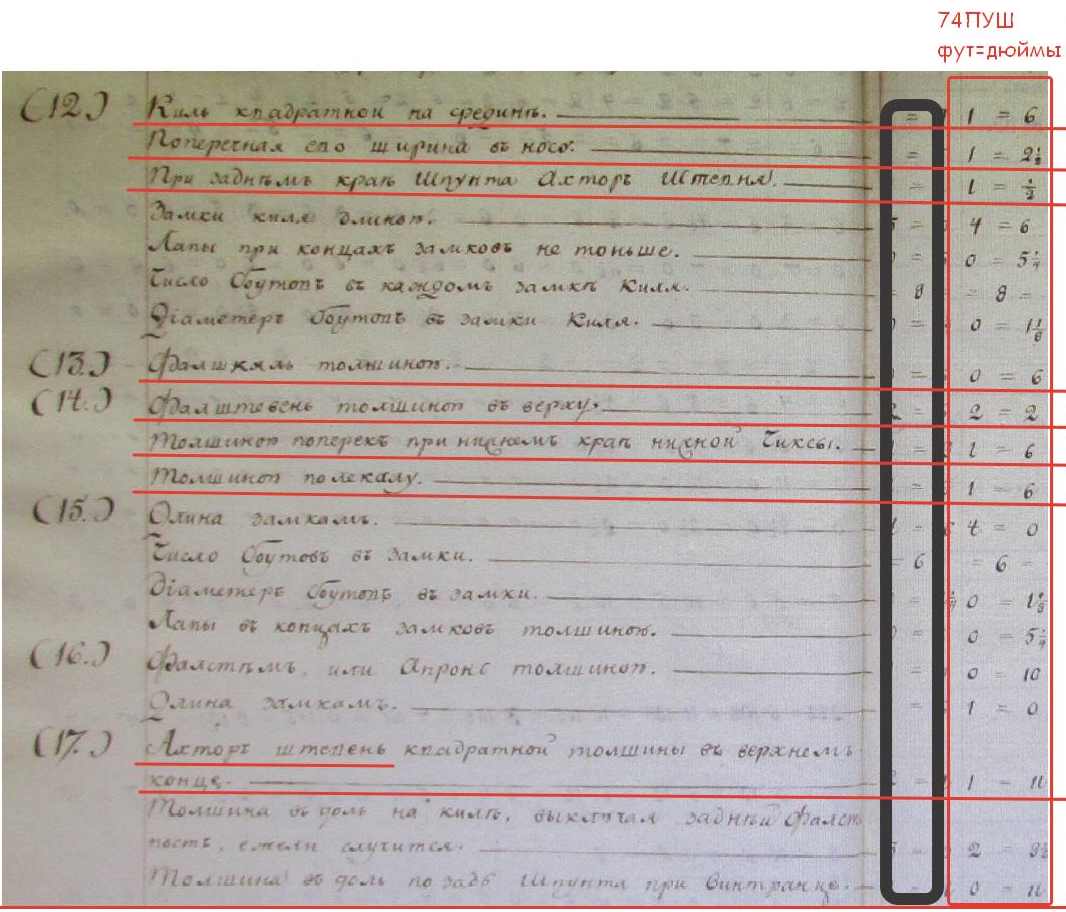 74ПУШ
фут=дюймы
(12.) Киль квадратной на срединѣ. = 1 = 6
Поперечная его ширина въ носо: = 1 = 2½
При заднѣмъ краѣ Шпунта Ахторъ Штевня. = 1 = ½
Замки киля длиною. 5 = 4 = 6
Лапы при концахъ замковъ не тоньше. = 0 = 5¼
Число болтовъ въ каждомъ замкѣ Киля. = 8 = 8 =
Діаметеръ болтовъ въ замки Киля. = 0 = 1⅛
(13.) Фалшкиль толщиною. = 0 = 6
(14.) Фалштевень толщиною въ верху, 2 = 2 = 2
Толщиною поперекъ при нижнемъ краѣ нижной Чиксы. = 1 = 6
Толщиною полекалу. = 1 = 6
(15.) Длина замкамъ. 4 = 4 = 0
Число болтовъ въ замки. = 6 = 6 =
Діаметеръ болтовъ въ замки. = 0 = 1⅛
Лапы въ концахъ замковъ толщиною. = 0 = 5¼
(16.) Фалстѣмъ, или Апронс толщиною. = 0 = 10
Длина замкамъ. = 1 = 0
(17.) Ахторъ штевень квадратной толщины въ верхнемъ
концѣ. 2 = 1 = 11
Толшина въ доль на килѣ, выключая задней Фалст
постъ, ежели случится. = 2 =
Толшина въ доль по задѣ Шпунта при Винтранце. = 0 = 11